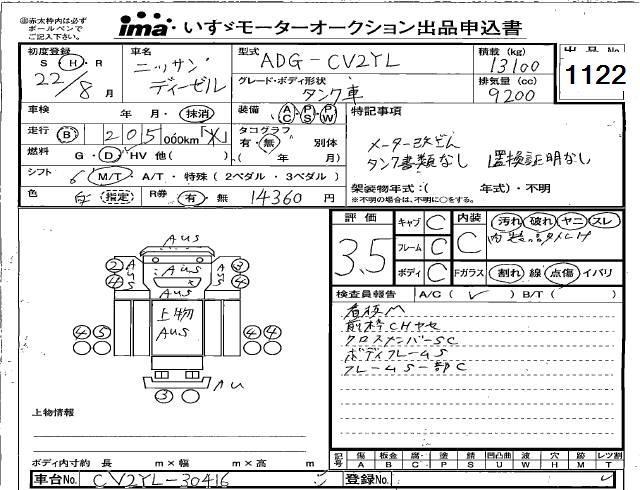 赤太枠内は必ず
ボールペンで
ご記入下さい。
ima いすゞモーターオークション出品申込書
初度登録 S H・R 22/8月
車名 ニッサンディーゼル
型式 ADG-CV2YL
積載 (kg) 13100
出品No 1122
グレード・ボディ形状 タンク車
排気量 (cc) 9200
車検 年 月・抹消
装備 AC・PS・PW
特記事項
走行 B 205,000km「
タコグラフ 有・無 別体 ( 年 月)
メーター改ざん
タンク書類なし 置換証明なし
燃料 G・D・HV 他( )
シフト 6 M/T・A/T・特殊 (2ペダル・3ペダル)
架装物年式:( 年式)・不明
※不明の場合は、不明に○をする。
色 白 指定
R券 有・無 14360円
評価 3.5
キャブ C
フレーム C
ボディ C
内装 C 汚れ 破れ ヤニ スレ
Fガラス 割れ 線 点傷 イバリ
検査員報告 A/C(✓) B/T( )
看板M
クロスメンバーSC
ボディフレームS
フレームS一部C
AUS
② A AUS A
④ U S U S
上物
AUS
④⑤ ④④
AU
③
上物情報
ボディ内寸約 長 m×幅 m×高 m
記号 傷A 板金B 腐C 塗P 錆S 凹凸曲U 波W 穴H 跡M レツ割T
車台No. CV2YL-30416
登録No.